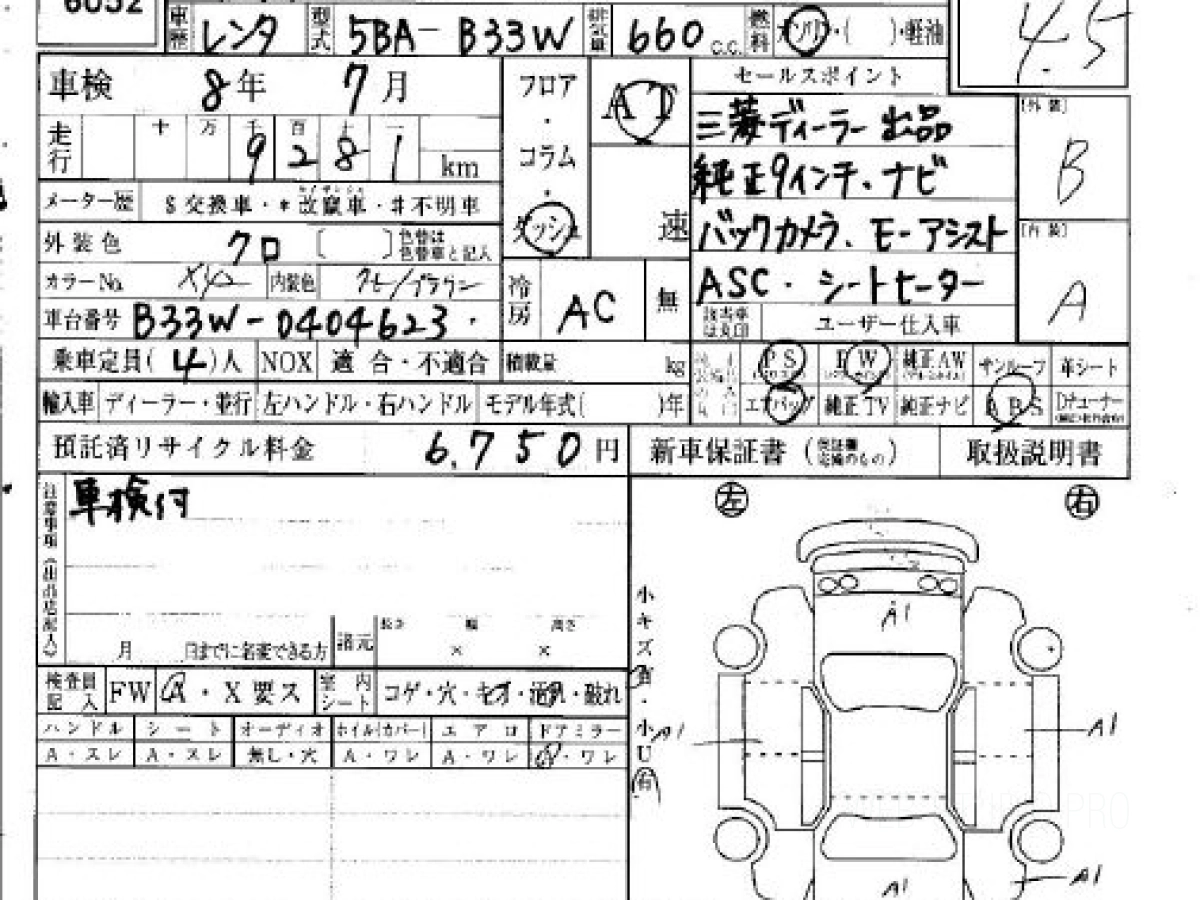 6052
車歴 レンタ 型式 5BA-B33W 排気量 660 c.c. 燃料 ガソリン・( )・軽油
4.5
車検 8年 7月
フロア・コラム・ダッシュ
AT
速
セールスポイント
三菱ディーラー出品
純正9インチ・ナビ
バックカメラ、モーアシスト
ASC・シートヒーター
[外装]
B
[内装]
A
走行 十 万 千 百 十 一
9281 km
メーター歴 $交換車・*改竄車・#不明車
外装色 クロ [ ] 色替は色替車と記入
カラーNo. 内装色
冷房 AC 無
該当車は丸印 ユーザー仕入車
車台番号 B33W-0404623
乗車定員(4)人 NOX 適合・不適合 積載量 kg
PS PW 純正AW サンルーフ 革シート
輸入車 ディーラー・並行 左ハンドル・右ハンドル モデル年式( )年
エアバッグ 純正TV 純正ナビ ABS Dチューナー
預託済リサイクル料金 6,750円
新車保証書 (保証欄完備のもの) 取扱説明書
注意事項(出品店記入)
車検付
月 日までに名変できる方 諸元 長さ × 幅 × 高さ
左 右
小キズ有・小U有
A1
A1
A1
A1
A1
検査員記入 FW A・X要ス 室内シート コゲ・穴・キズ・汚れ・破れ
ハンドル シート オーディオ ホイル(カバー) エアロ ドアミラー
A・スレ A・スレ 無し・穴 A・ワレ A・ワレ A・ワレ